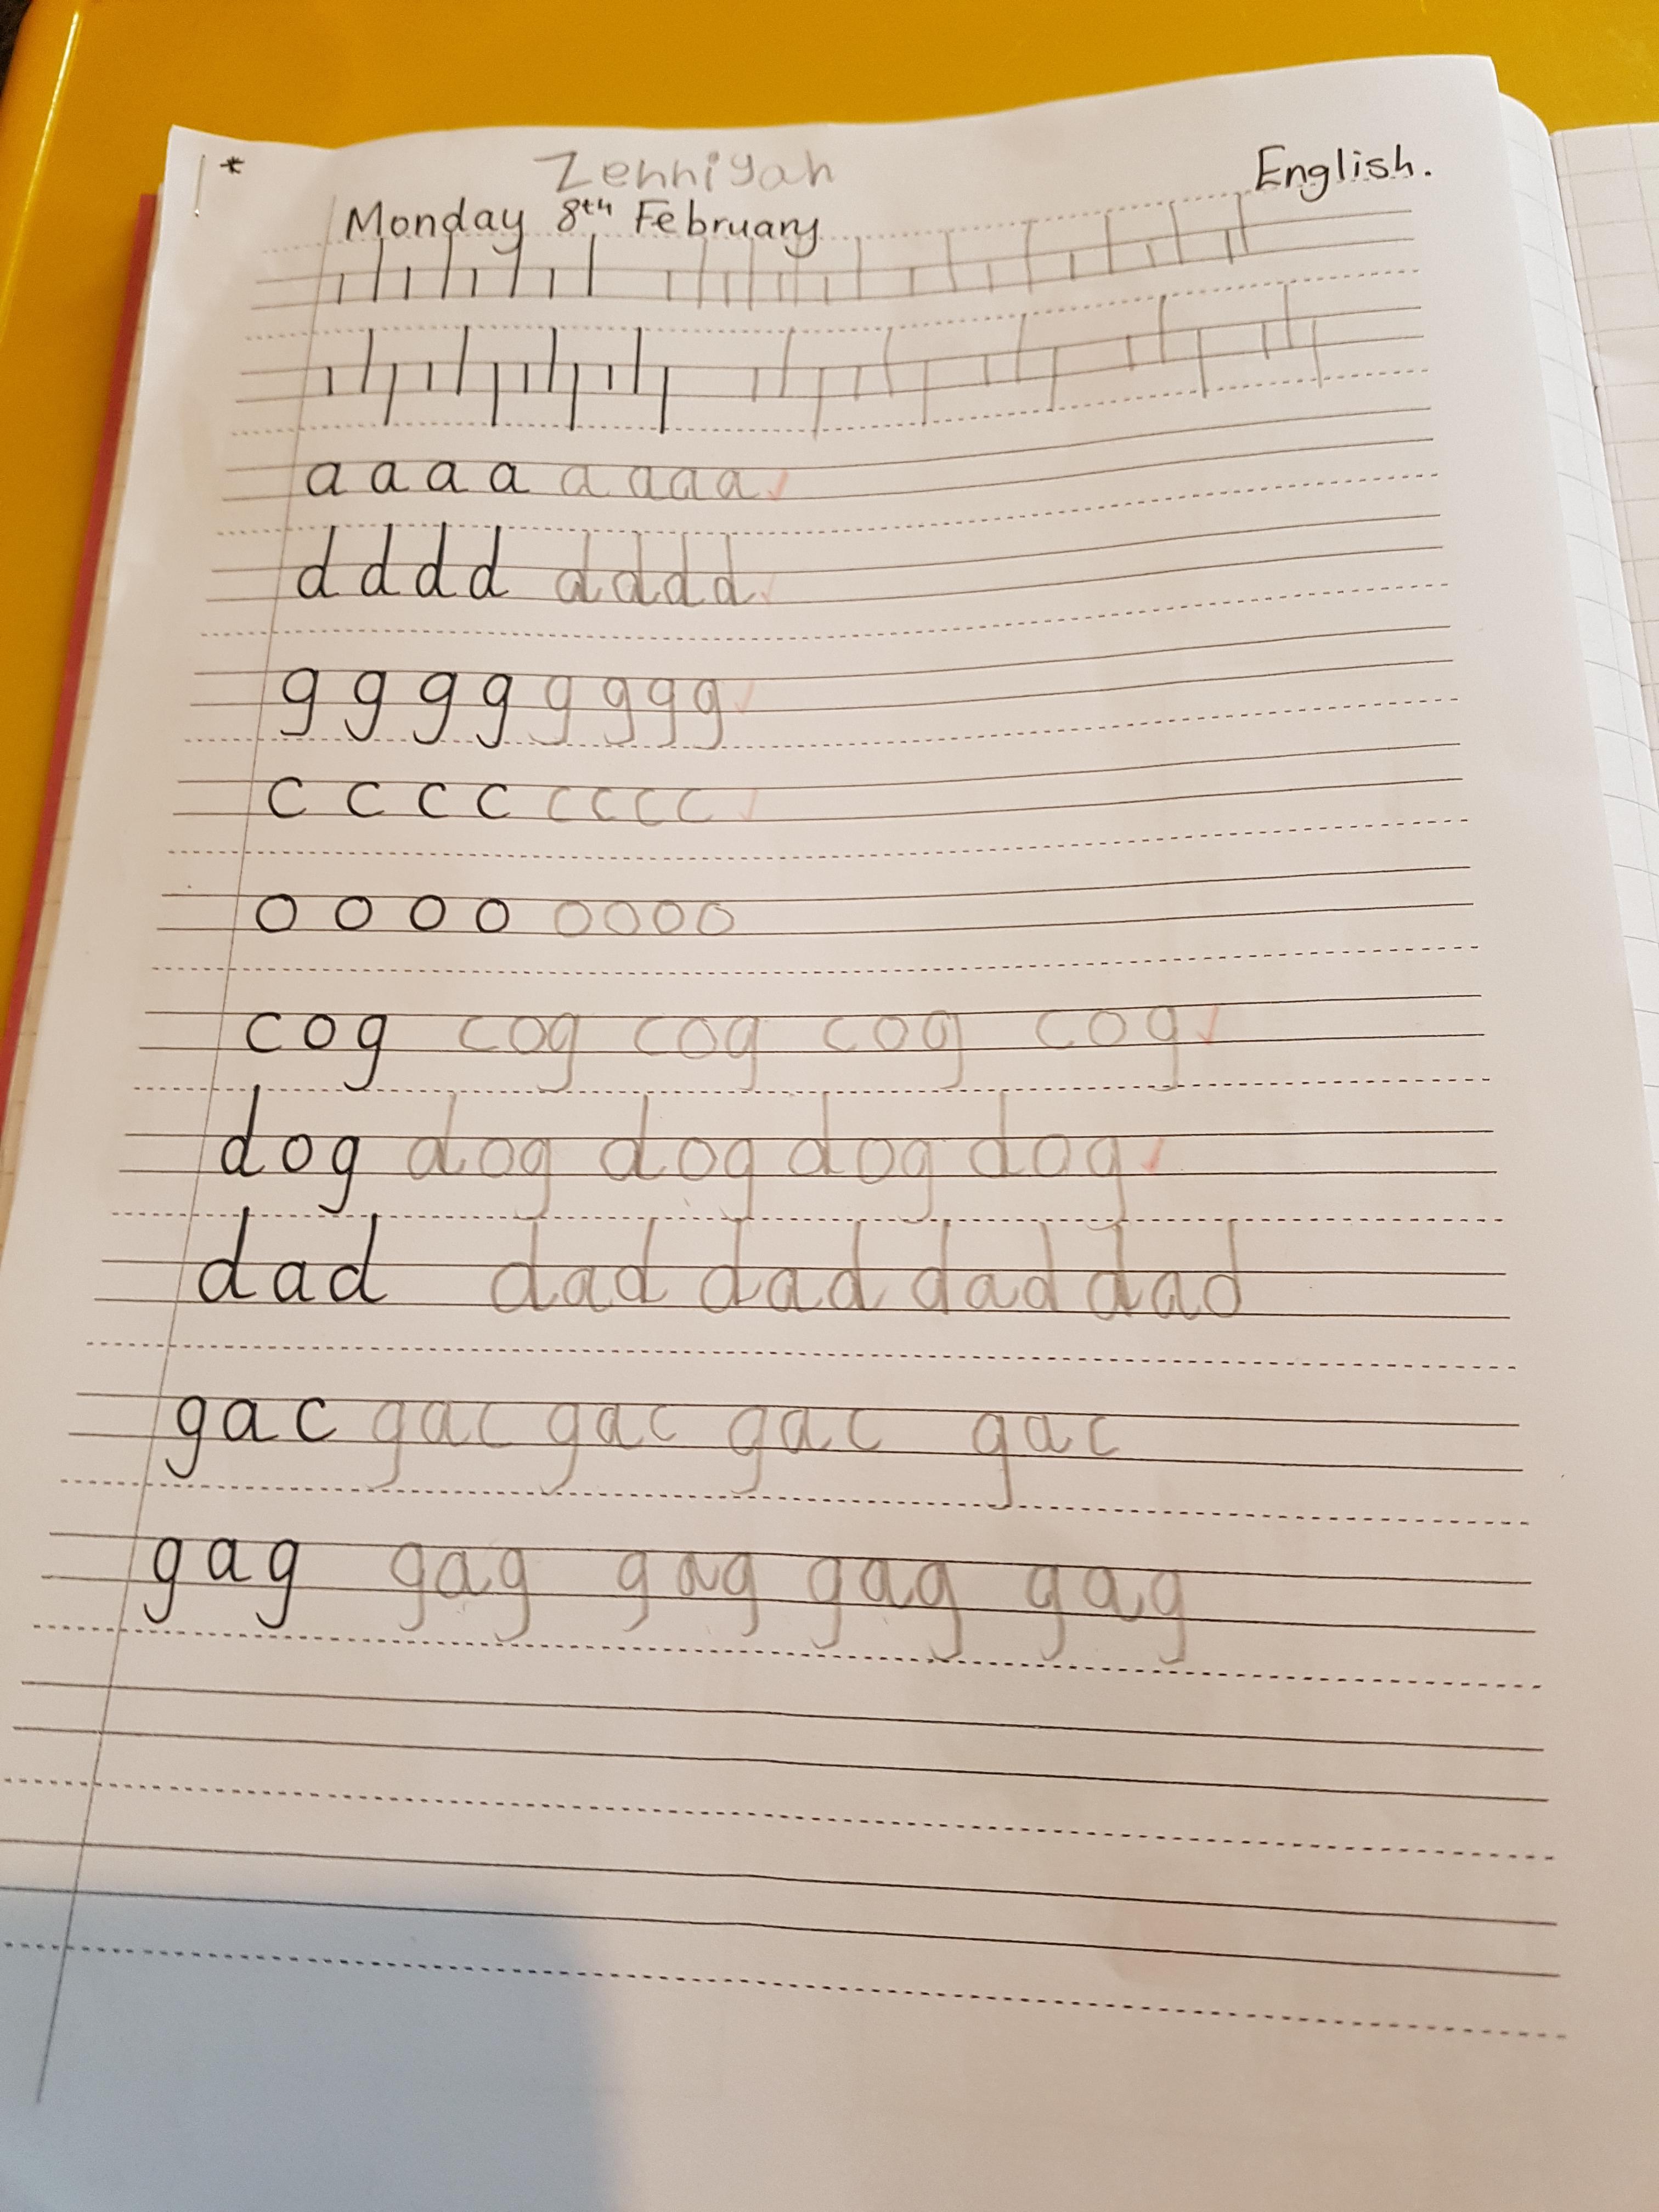 * Zenniyah English.
Monday 8th February
a a a a a a a a
d d d d d d d d
g g g g g g g g
c c c c c c c c
o o o o o o o o
cog cog cog cog cog
dog dog dog dog dog
dad dad dad dad dad
gac gac gac gac gac
gag gag gag gag gag